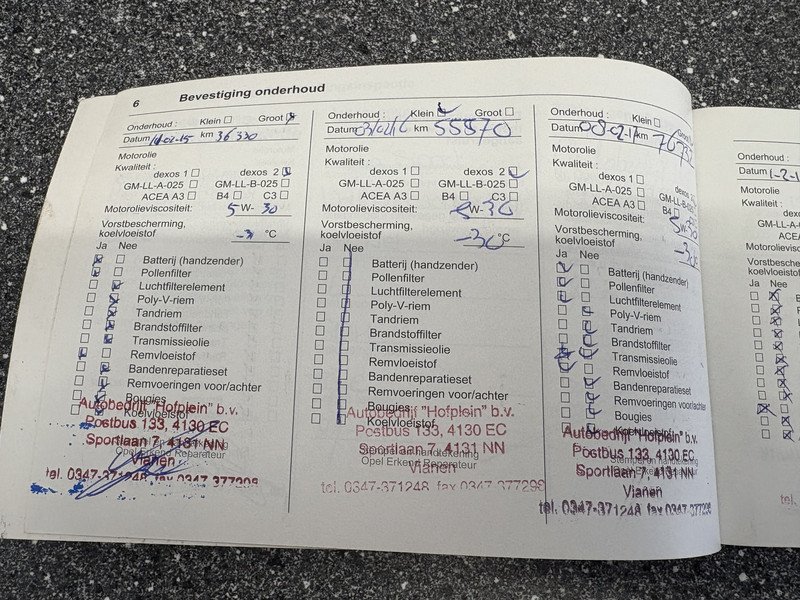 6 Bevestiging onderhoud
Onderhoud : Klein Groot
Datum -02-15 km 36330
Motorolie
Kwaliteit :
dexos 1 dexos 2
GM-LL-A-025 GM-LL-B-025
ACEA A3 B4 C3
Motorolieviscositeit: 5 W- 30
Vorstbescherming,
koelvloeistof °C
Ja Nee
Batterij (handzender)
Pollenfilter
Luchtfilterelement
Poly-V-riem
Tandriem
Brandstoffilter
Transmissieolie
Remvloeistof
Bandenreparatieset
Remvoeringen voor/achter
Bougies
Koelvloeistof
Autobedrijf "Hofplein" b.v.
Postbus 133, 4130 EC
Sportlaan 7, 4131 NN
Vianen
Opel Erkend Reparateur
tel. 0347-371248 fax 0347 377298
Onderhoud : Klein Groot
Datum km 55570
Motorolie
Kwaliteit :
dexos 1 dexos 2
GM-LL-A-025 GM-LL-B-025
ACEA A3 B4 C3
Motorolieviscositeit: 5W-30
Vorstbescherming,
koelvloeistof -30 °C
Ja Nee
Batterij (handzender)
Pollenfilter
Luchtfilterelement
Poly-V-riem
Tandriem
Brandstoffilter
Transmissieolie
Remvloeistof
Bandenreparatieset
Remvoeringen voor/achter
Bougies
Koelvloeistof
Autobedrijf "Hofplein" b.v.
Postbus 133, 4130 EC
Sportlaan 7, 4131 NN
Stempel en handtekening
Vianen
Opel Erkend Reparateur
tel. 0347-371248 fax 0347 377298
Onderhoud : Klein
Datum 08-02-1 km
Motorolie
Kwaliteit :
dexos 1 dexos
GM-LL-A-025 GM-LL-B-025
ACEA A3 B4
Motorolieviscositeit: 5W-30
Vorstbescherming,
koelvloeistof -30
Ja Nee
Batterij (handzender)
Pollenfilter
Luchtfilterelement
Poly-V-riem
Tandriem
Brandstoffilter
Transmissieolie
Remvloeistof
Bandenreparatieset
Remvoeringen voor/achter
Bougies
Koelvloeistof
Autobedrijf "Hofplein" b.v.
Postbus 133, 4130 EC
Stempel en handtekening
Sportlaan 7, 4131 NN
Vianen
tel. 0347-371248 fax 0347-377298
Onderhoud :
Datum 1-2-1
Motorolie
Kwaliteit :
dexos
GM-LL-A
ACEA
Motorolievisco
Vorstbesche
koelvloeisto
Ja Nee
tel.